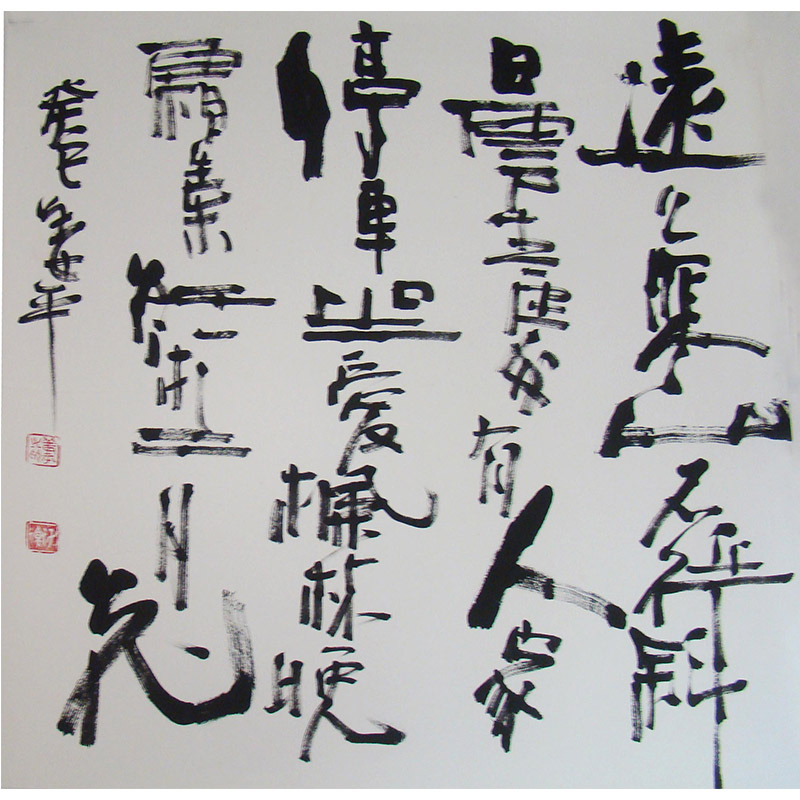 遠上寒山石徑斜
白雲生處有人家
停車坐愛楓林晚
霜葉紅於二月花
癸巳